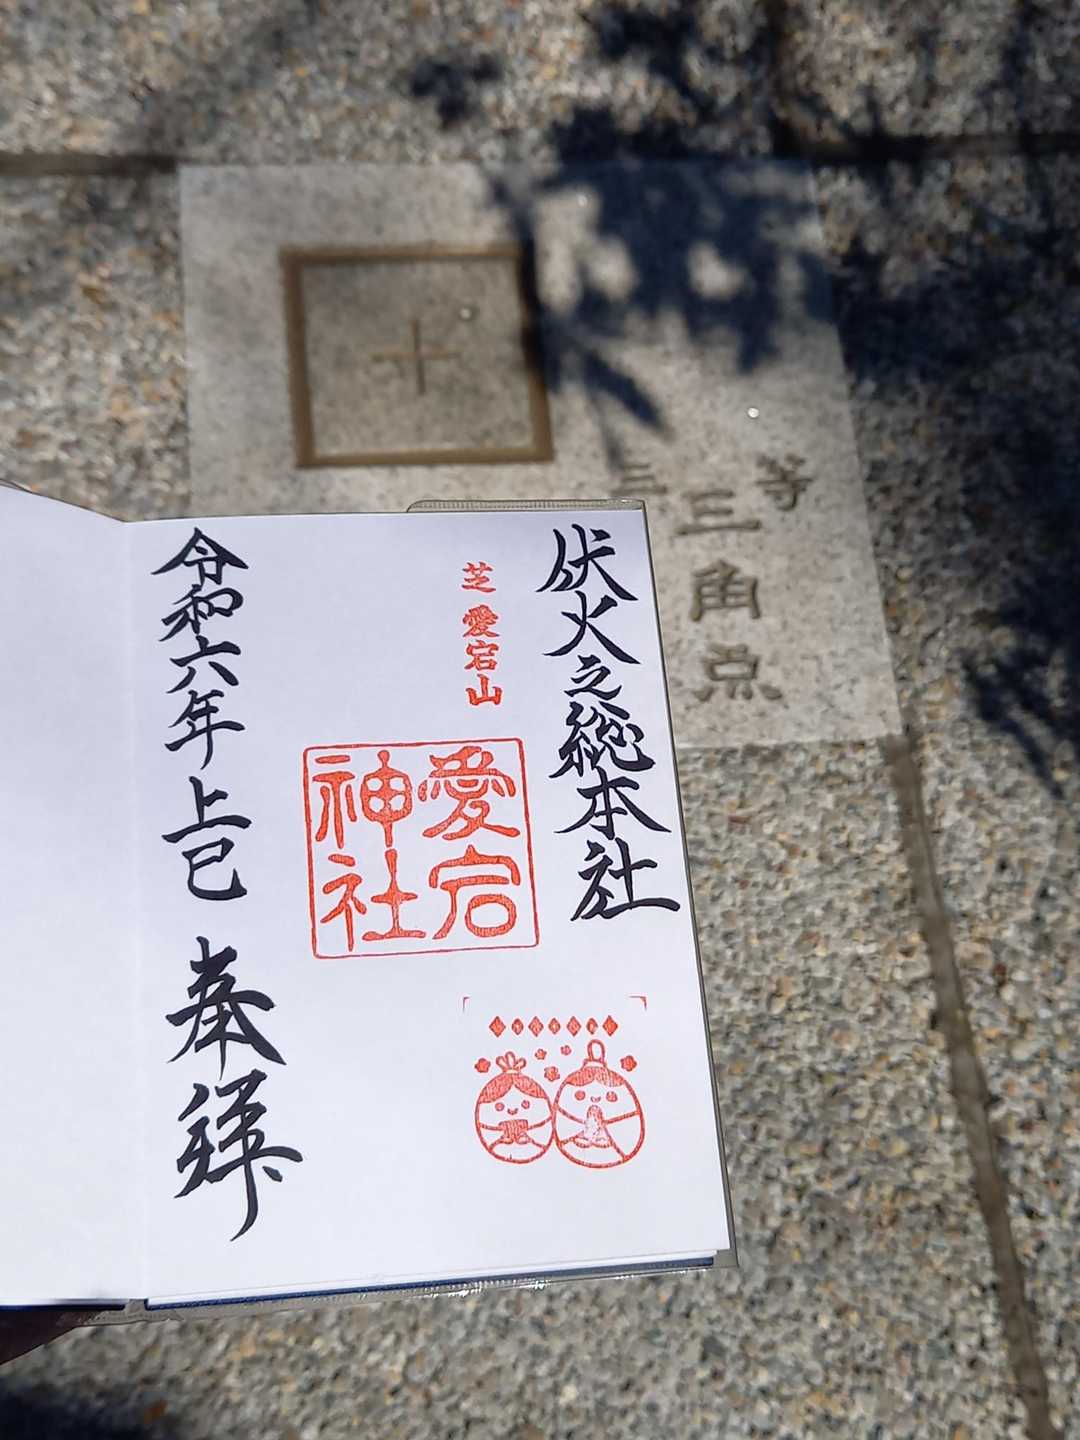 伏火之総本社
芝 愛宕山
愛宕
神社
令和六年上巳 奉拝
三等
三角点